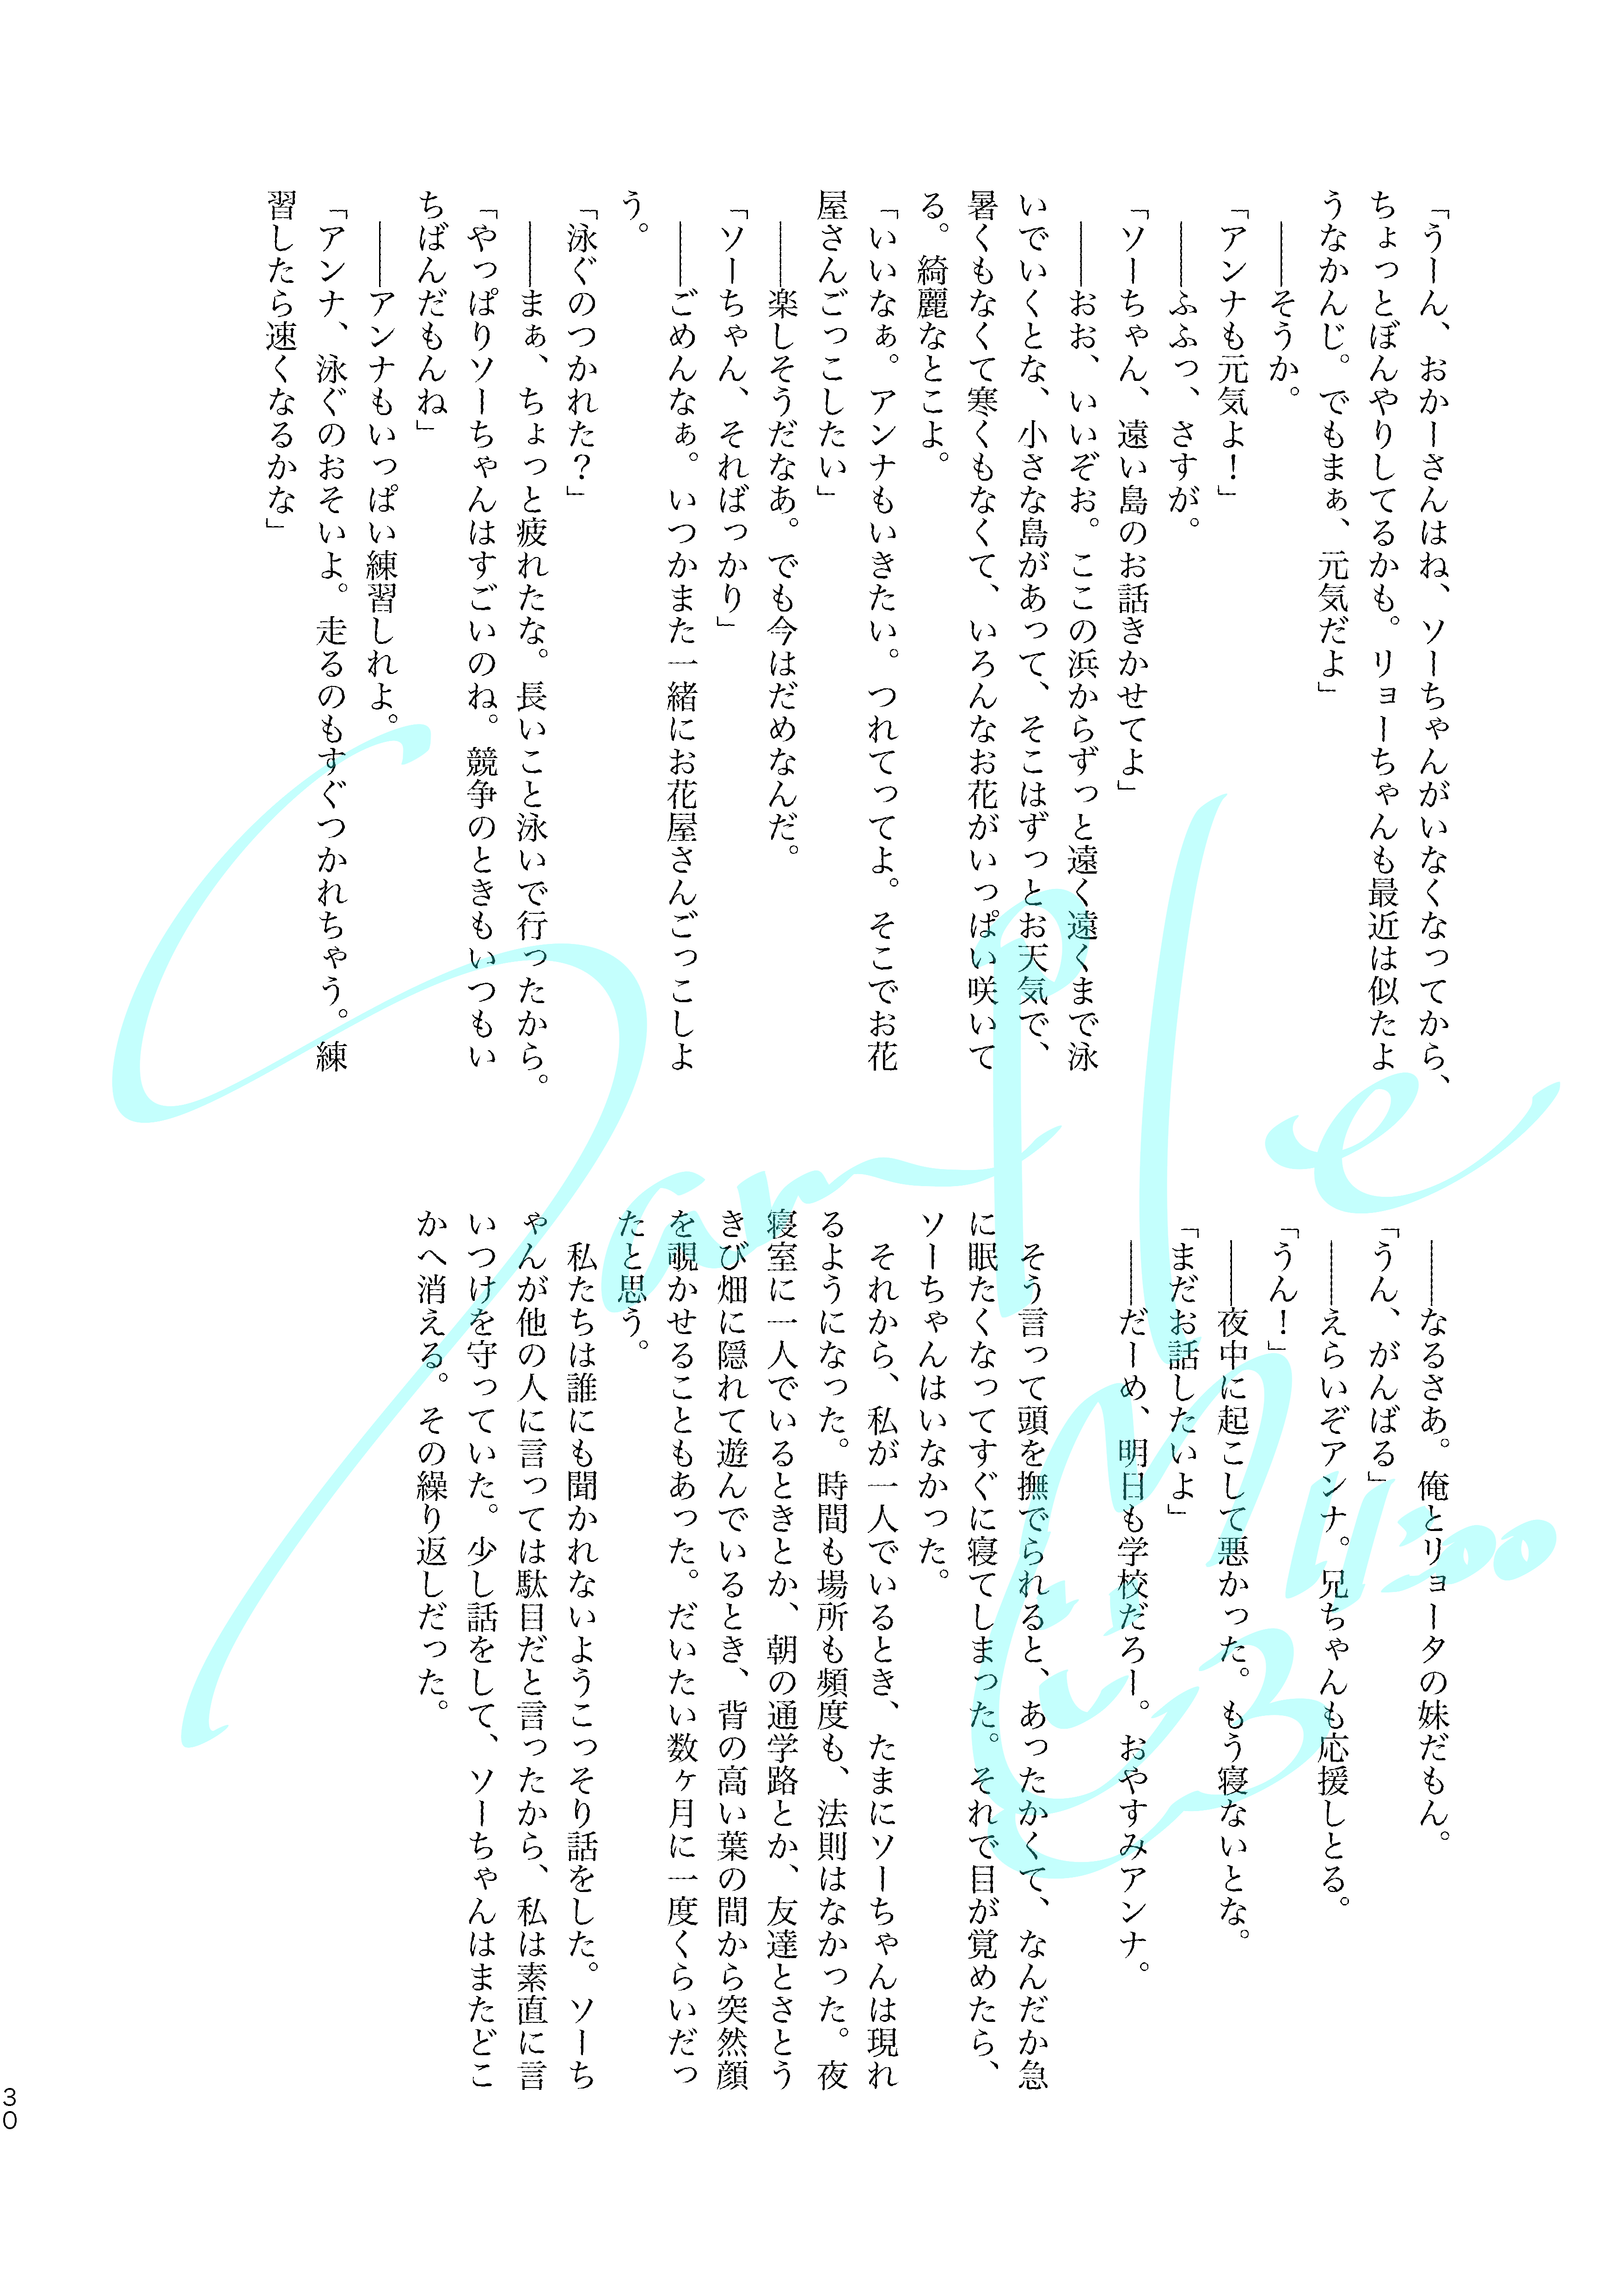 「うーん、おかーさんはね、ソーちゃんがいなくなってから、
ちょっとぼんやりしてるかも。リョーちゃんも最近は似たよ
うなかんじ。でもまぁ、元気だよ」
――そうか。
「アンナも元気よ！」
――ふふっ、さすが。
「ソーちゃん、遠い島のお話きかせてよ」
――おお、いいぞお。ここの浜からずっと遠く遠くまで泳
いでいくとな、小さな島があって、そこはずっとお天気で、
暑くもなくて寒くもなくて、いろんなお花がいっぱい咲いて
る。綺麗なとこよ。
「いいなぁ。アンナもいきたい。つれてってよ。そこでお花
屋さんごっこしたい」
――楽しそうだなあ。でも今はだめなんだ。
「ソーちゃん、そればっかり」
――ごめんなぁ。いつかまた一緒にお花屋さんごっこしよ
う。
「泳ぐのつかれた？」
――まぁ、ちょっと疲れたな。長いこと泳いで行ったから。
「やっぱりソーちゃんはすごいのね。競争のときもいつもい
ちばんだもんね」
――アンナもいっぱい練習しれよ。
「アンナ、泳ぐのおそいよ。走るのもすぐつかれちゃう。練
習したら速くなるかな」
――なるさあ。俺とリョータの妹だもん。
「うん、がんばる」
――えらいぞアンナ。兄ちゃんも応援しとる。
「うん！」
――夜中に起こして悪かった。もう寝ないとな。
「まだお話したいよ」
――だーめ、明日も学校だろー。おやすみアンナ。
そう言って頭を撫でられると、あったかくて、なんだか急
に眠たくなってすぐに寝てしまった。それで目が覚めたら、
ソーちゃんはいなかった。
それから、私が一人でいるとき、たまにソーちゃんは現れ
るようになった。時間も場所も頻度も、法則はなかった。夜
寝室に一人でいるときとか、朝の通学路とか、友達とさとう
きび畑に隠れて遊んでいるとき、背の高い葉の間から突然顔
を覗かせることもあった。だいたい数ヶ月に一度くらいだっ
たと思う。
私たちは誰にも聞かれないようこっそり話をした。ソーち
ゃんが他の人に言っては駄目だと言ったから、私は素直に言
いつけを守っていた。少し話をして、ソーちゃんはまたどこ
かへ消える。その繰り返しだった。
30
Sample